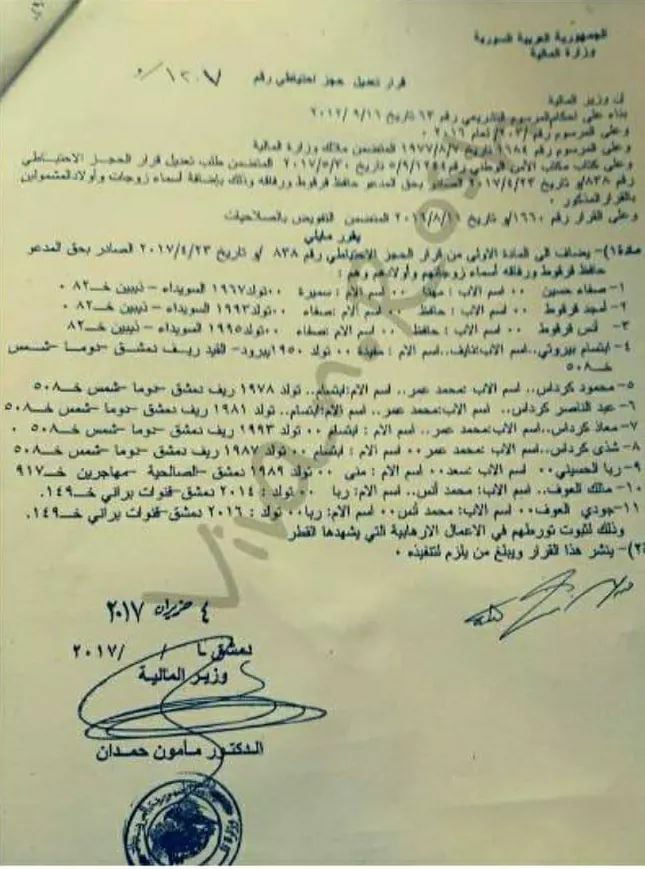 الجمهورية العربية السورية
وزارة المالية
قرار تعديل حجز احتياطي رقم ١٢٠٧/و
ان وزير المالية
بناء على احكام المرسوم التشريعي رقم ٦٣ تاريخ ٢٠١٢/٩/١٦
وعلى المرسوم رقم /٢٠٣/ لعام ٢٠١٦ ٠
وعلى المرسوم رقم ١٦٨٤ تاريخ ١٩٧٧/٨/٧ المتضمن ملاك وزارة المالية
وعلى كتاب مكتب الأمن الوطني رقم ٥/٩/١٢٤٤ تاريخ ٢٠١٧/٥/٣٠ المتضمن طلب تعديل قرار الحجز الاحتياطي
رقم ٨٣٨/و تاريخ ٢٠١٧/٤/٢٣ الصادر بحق المدعو حافظ قرقوط ورفاقه وذلك بإضافة أسماء زوجات وأولاد المشمولين
بالقرار المذكور ٠
وعلى القرار رقم ١٦٦٠/و تاريخ ٢٠١٦/٨/١١ المتضمن التفويض بالصلاحيات
يقرر مايلي
مادة١)- يضاف الى المادة الاولى من قرار الحجز الاحتياطي رقم ٨٣٨ /و تاريخ ٢٠١٧/٤/٢٣ الصادر بحق المدعو
حافظ قرقوط ورفاقه أسماء زوجاتهم وأولادهم وهم :
١- صفاء حسين ٠٠ اسم الاب : مهنا ٠٠ اسم الام : سميرة ٠٠تولد١٩٦٧ السويداء - ذيبين خــ٨٢ ٠
٢- أمجد قرقوط ٠٠ اسم الاب : حافظ ٠٠ اسم الام :صفاء ٠٠تولد١٩٩٣ السويداء - ذيبين خــ٨٢ ٠
٣- أنس قرقوط ٠٠ اسم الاب : حافظ ٠٠ اسم الام :صفاء ٠٠تولد١٩٩٥ السويداء - ذيبين خــ٨٢
٤- ابتسام بيروتي..اسم الاب:نايف..اسم الام : حفيدة ٠٠ تولد ١٩٥٠يبرود- القيد ريف دمشق -دوما -شمس
خــ٥٠٨
٥- محمود كرداس.. اسم الاب :محمد عمر.. اسم الام:ابتسام.. تولد ١٩٧٨ ريف دمشق -دوما -شمس خــ٥٠٨
٦- عبد الناصر كرداس.. اسم الاب:محمد عمر.. اسم الام:ابتسام.. تولد ١٩٨١ ريف دمشق -دوما -شمس خــ٥٠٨
٧- معاذ كرداس..اسم الاب:محمد عمر.. اسم الام : ابتسام ٠٠ تولد ١٩٩٣ ريف دمشق -دوما -شمس خــ٥٠٨ ٠
٨- شذى كرداس..اسم الاب :محمد عمر٠٠ اسم الام : ابتسام ٠٠ تولد ١٩٨٧ ريف دمشق -دوما -شمس خــ٥٠٨
٩- ربا الحسيني٠٠ اسم الاب :سعد٠٠ اسم الام : منى ٠٠ تولد ١٩٨٩ دمشق -الصالحية - مهاجرين خــ٩١٧
١٠- مالك العوف.. اسم الاب: محمد أنس.. اسم الام: ربا ٠٠ تولد : ٢٠١٤ دمشق -قنوات براني خــ١٤٩.
١١- جودي العوف٠٠ اسم الاب: محمد أنس٠٠ اسم الام: ربا٠٠ تولد : ٢٠١٦ دمشق-قنوات براني خــ١٤٩.
وذلك لثبوت تورطهم في الاعمال الارهابية التي يشهدها القطر
٢)- ينشر هذا القرار ويبلغ من يلزم لتنفيذه ٠
٤ حزيران ٢٠١٧
دمشق في / /٢٠١٧
وزير المالية
الدكتور مأمون حمدان